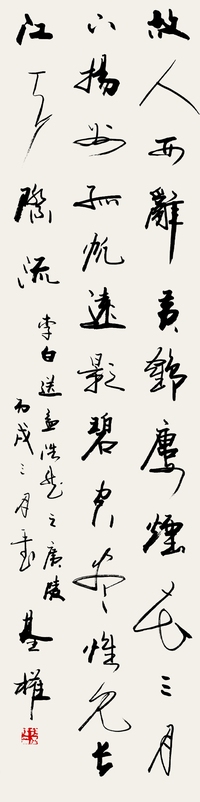 故人西辭黃鶴廔煙花三月
下揚州孤帆遠影碧空盡惟見長
江天際流
李白送孟浩然之廣陵
丙戌三月書
基權